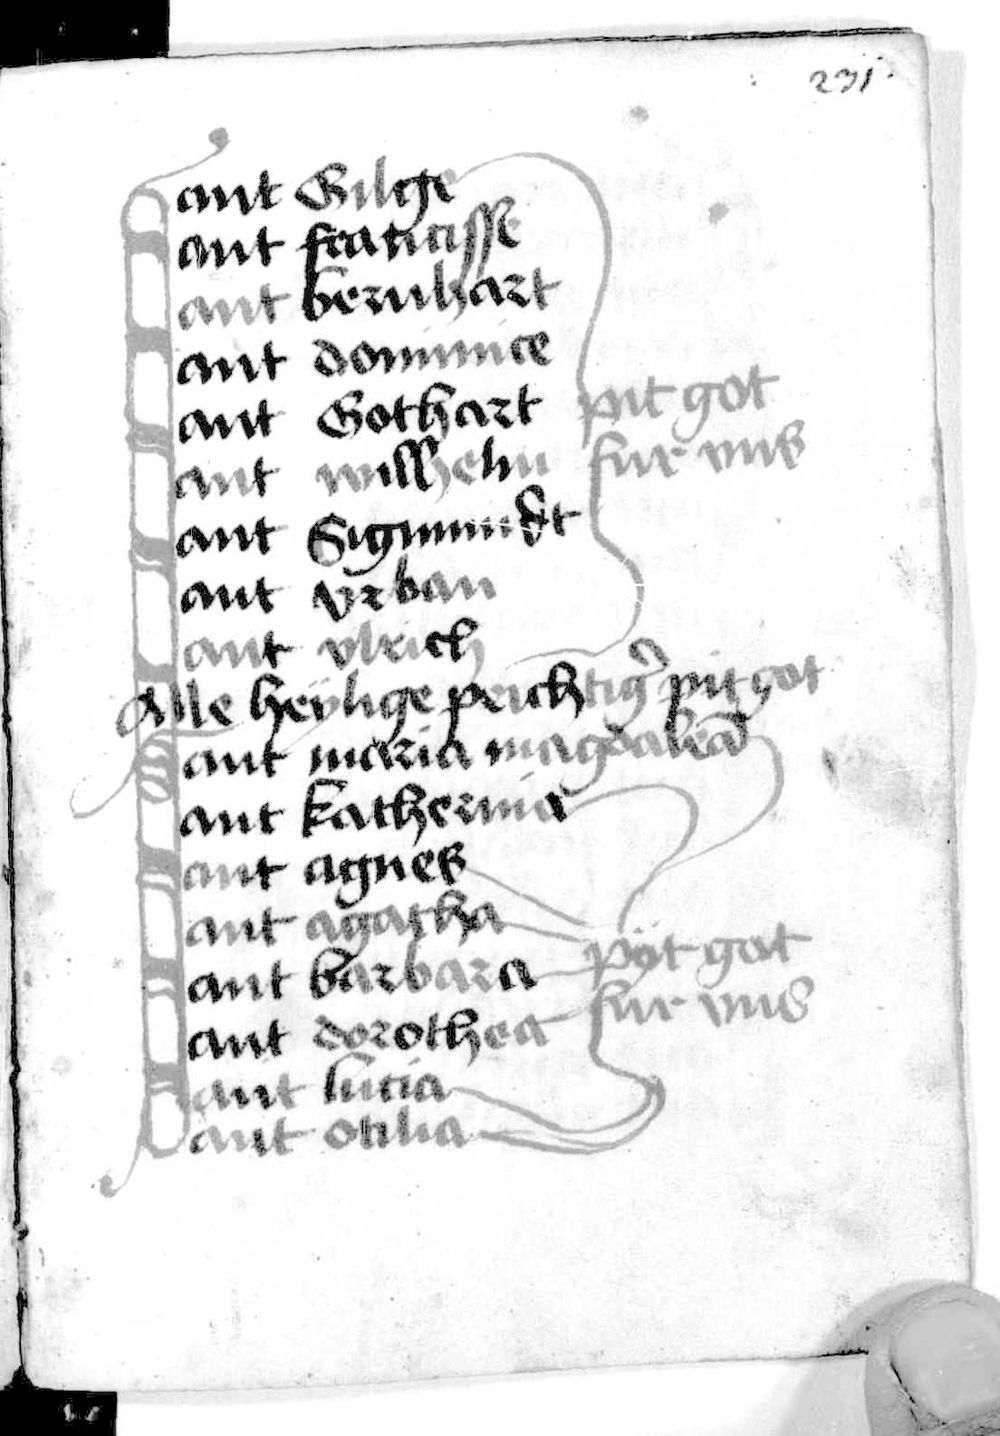 231
Sant Gilge
Sant francisse
Sant bernhart
Sant dominice
Sant Gothart pit got
Sant wilhelm fur vns
Sant Sigmundt
Sant vrban
Sant vlrich
Alle heylige peichtiger pit got
Sant maria magdalena
Sant katherina
Sant agnes
Sant agatha
Sant barbara pyt got
Sant dorothea fur vns
Sant lucia
Sant otilia